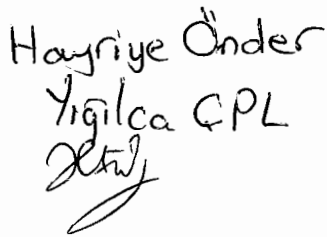 Hayriye Önder
Yığılca ÇPL